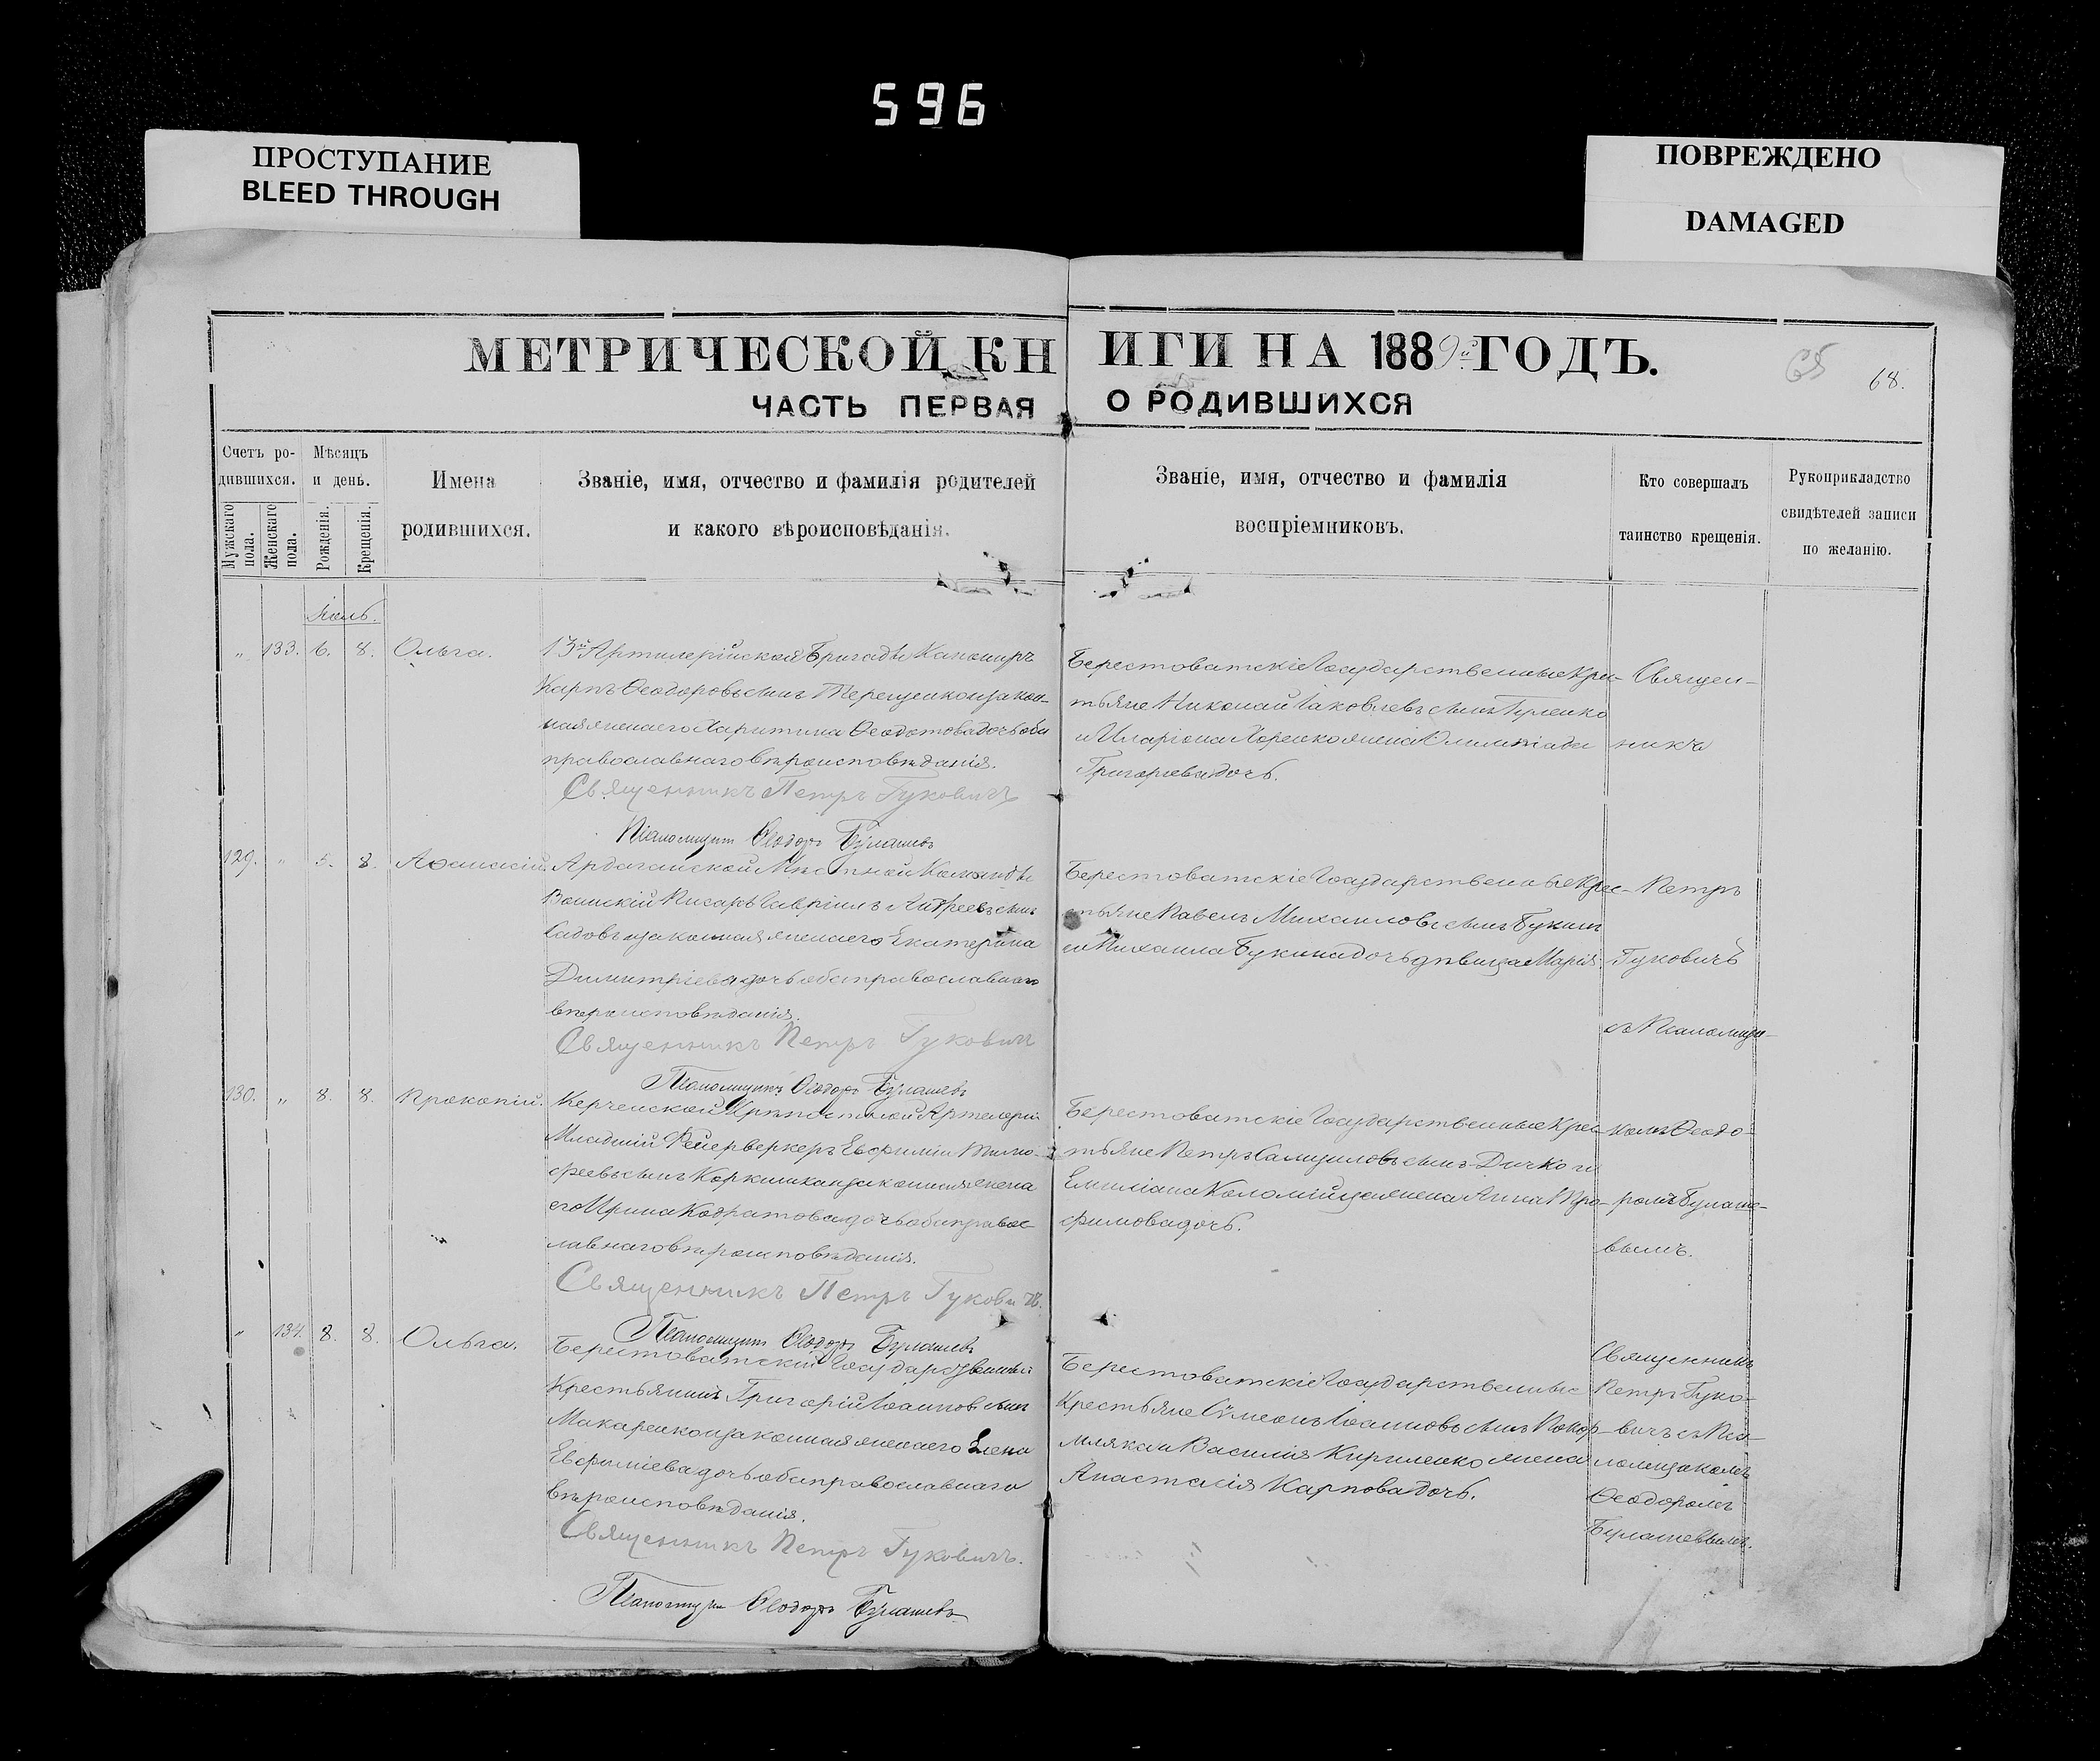 596
ПРОСТУПАНИЕ
BLEED THROUGH
ПОВРЕЖДЕНО
DAMAGED
МЕТРИЧЕСКОЙ КНИГИ НА 1889й ГОДЪ.
68.
ЧАСТЬ ПЕРВАЯ О РОДИВШИХСЯ
Счетъ ро-
дившихся.
Мужскаго пола.
Женскаго пола.
Мѣсяцъ
и день.
Рожденія.
Крещенія.
Имена
родившихся.
Званіе, имя, отчество и фамилія родителей
и какого вѣроисповѣданія.
Званіе, имя, отчество и фамилія
воспріемниковъ.
Кто совершалъ
таинство крещенія.
Рукоприкладство
свидѣтелей записи
по желанію.
Іюль.
„ 133. 6. 8. Ольга.
13й Артилерійской Бригады Канониръ
Карпъ Ѳеодоровъ сынъ Терещенко и закон-
ная жена его Харитина Ѳеодотова дочь оба
православнаго вѣроисповѣданія.
Священникъ Петръ Гуковичъ
Псаломщикъ Ѳеодоръ Булашевъ
Берестоватскіе Государственные Крес-
тьяне Николай Іаковлевъ сынъ Гуленко
и Иларіона Хоренко жена Олимпіада
Григорьева дочь.
129. „ 5. 8. Аѳанасій.
Ардаганской Мѣстной Команды
Воинскій Писарь Гавріилъ Андреевъ сынъ
Садовъ и законная жена его Екатерина
Димитріева дочь оба православнаго
вѣроисповѣданія.
Священникъ Петръ Гуковичъ
Псаломщикъ Ѳеодоръ Булашевъ
Берестоватскіе Государственные Крес-
тьяне Павелъ Михаиловъ сынъ Букинъ
и Михаила Букина дочь дѣвица Марія.
130. „ 8. 8. Прокопій.
Керченской Крѣпостной Артилеріи
Младшій Фейерверкеръ Евфимій Тимо-
феевъ сынъ Коркишка и законная жена
его Ирина Кодратова дочь оба правос-
лавнаго вѣроисповѣданія.
Священникъ Петръ Гуковичъ.
Псаломщикъ Ѳеодоръ Булашевъ
Берестоватскіе Государственные Крес-
тьяне Петръ Самуиловъ сынъ Дичко и
Емиліана Коломійца жена Анна Тро-
фимова дочь.
Священ-
никъ
Петръ
Гуковичъ
съ Псаломщи-
комъ Ѳеодо-
ромъ Булаше-
вымъ.
„ 134. 8. 8. Ольга.
Берестоватскій Государственный
Крестьянинъ Григорій Іоанновъ сынъ
Макаренко и законная жена его Елена
Евфиміева дочь оба православнаго
вѣроисповѣданія.
Священникъ Петръ Гуковичъ.
Псаломщикъ Ѳеодоръ Булашевъ
Берестоватскіе Государственные
Крестьяне Сѵмеонъ Іоанновъ сынъ
и Василія Кириленко жена
Анастасія Карпова дочь.
Священникъ
Петръ Гуко-
вичъ съ Пса-
ломщикомъ
Ѳеодоромъ
Булашевымъ.